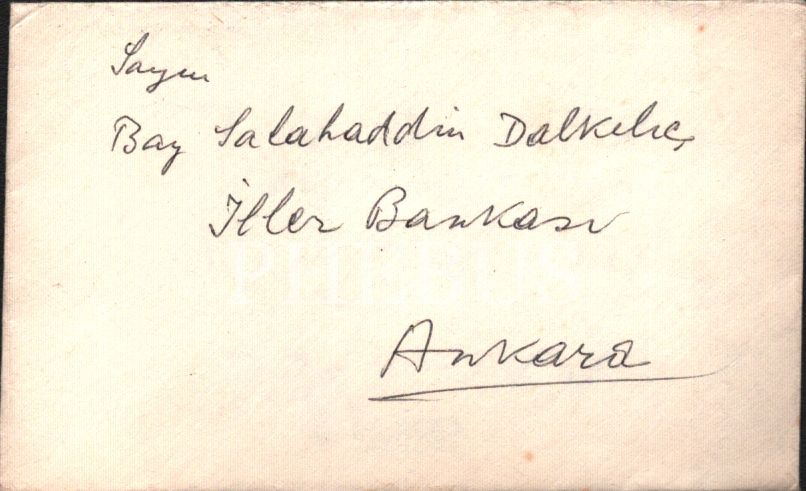 Sayın
Bay Salahaddin Dalkılıç
İller Bankası
PHEBUS
Ankara